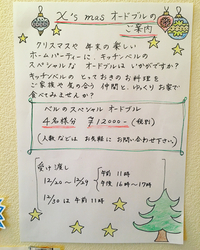 X's mas オードブルの
ご案内
クリスマスや 年末の楽しい
ホームパーティーに、キッチンベルの
スペシャルな オードブルは いかがですか？
キッチンベルの とっておきのお料理を
ご家族や気の合う 仲間と、ゆっくり お家で
食べてみませんか？
ベルのスペシャル オードブル
4名様分 ¥12000- (税別)
(人数などは お気軽に お問い合わせ下さい)
受け渡し
12/20 〜 12/29 午前 11時
午後 16時〜17時
12/30 は 午前 11時